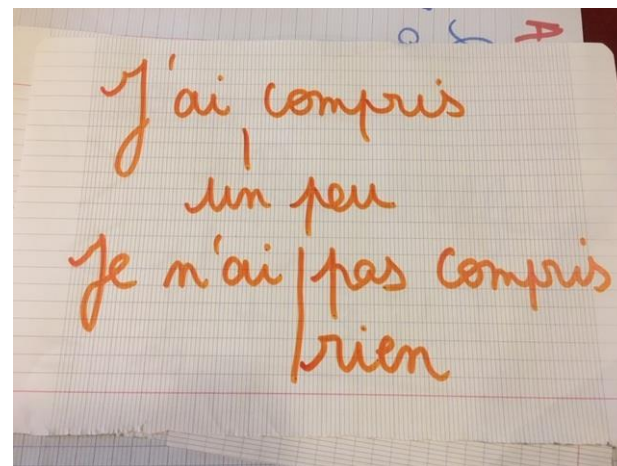 J'ai compris
un peu
Je n'ai pas compris
rien